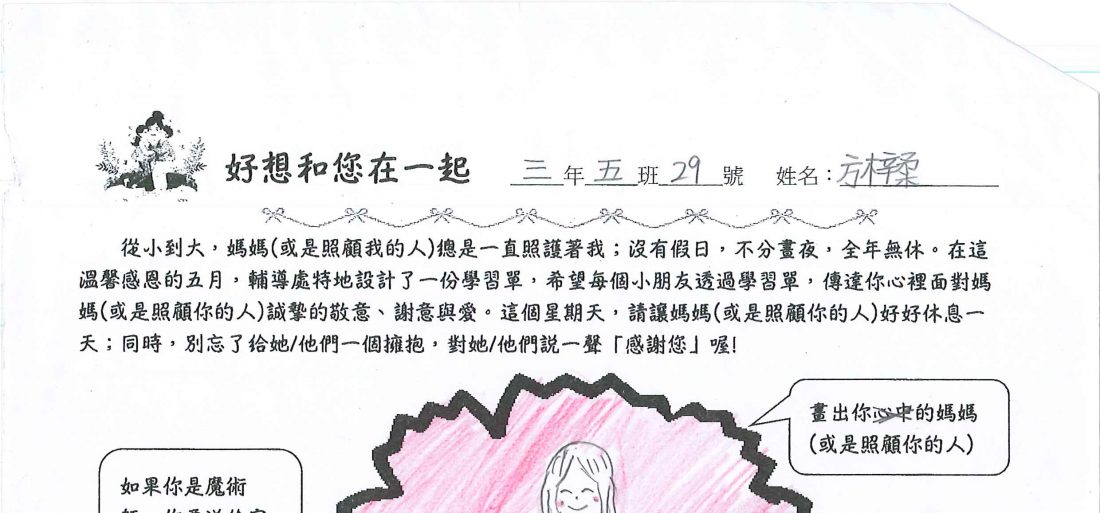 好想和您在一起 三年五班29號 姓名：方梓柔
從小到大，媽媽(或是照顧我的人)總是一直照護著我；沒有假日，不分晝夜，全年無休。在這
溫馨感恩的五月，輔導處特地設計了一份學習單，希望每個小朋友透過學習單，傳達你心裡面對媽
媽(或是照顧你的人)誠摯的敬意、謝意與愛。這個星期天，請讓媽媽(或是照顧你的人)好好休息一
天；同時，別忘了給她/他們一個擁抱，對她/他們說一聲「感謝您」喔!
畫出你心中的媽媽
(或是照顧你的人)
如果你是魔術